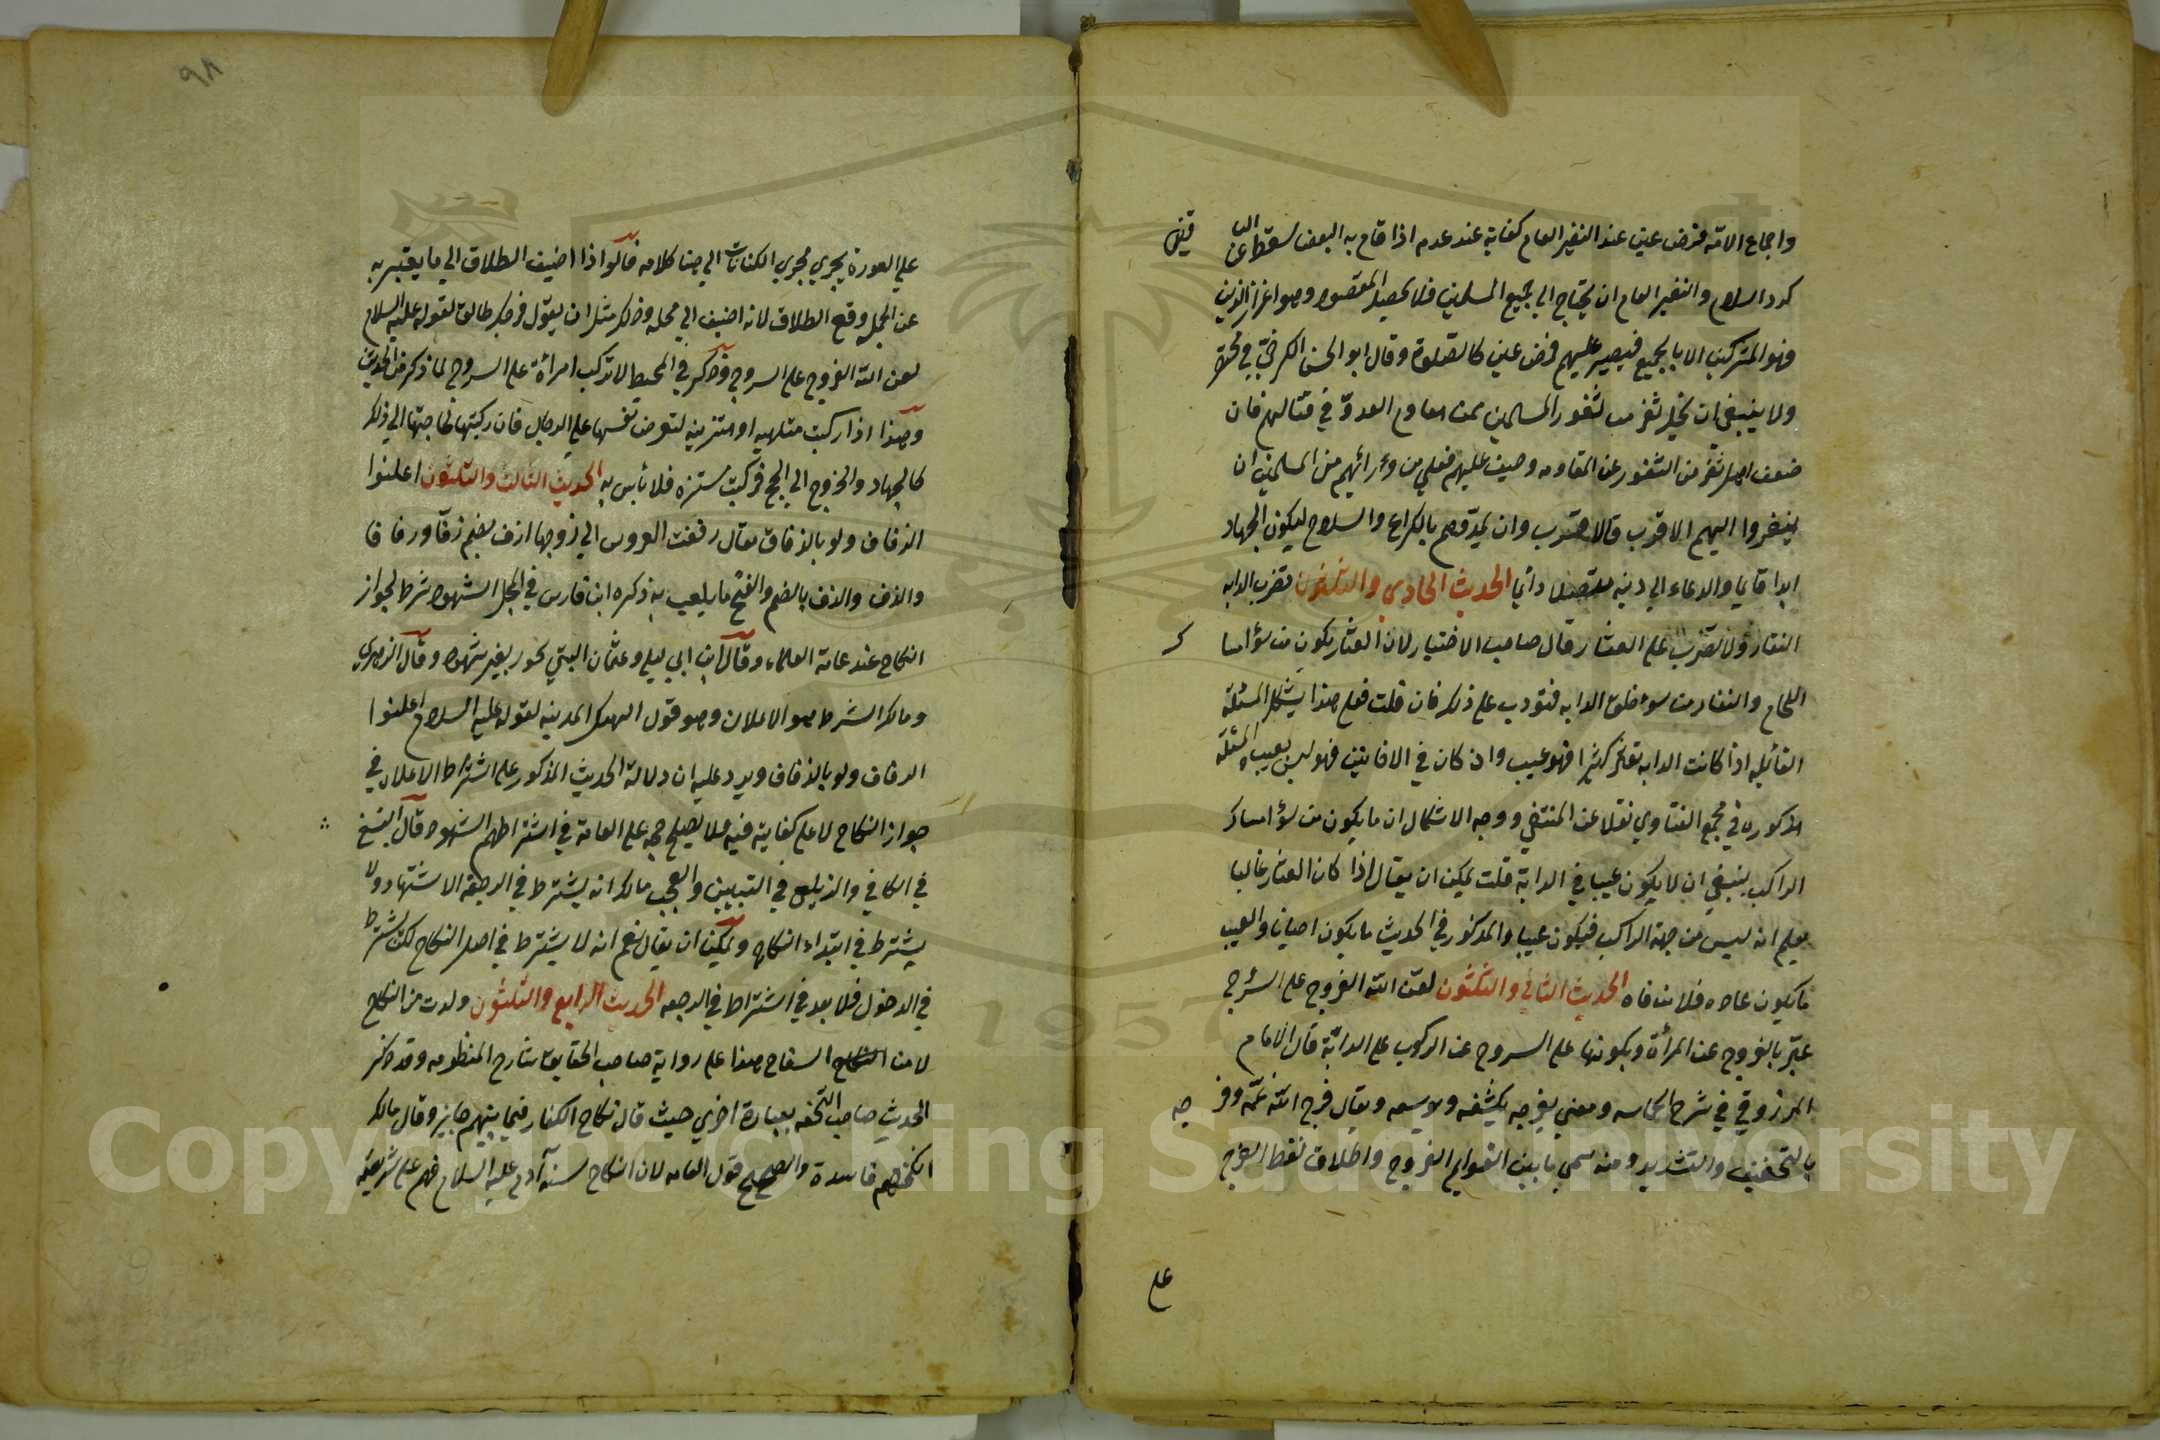 واجماع الامة فرض عين عند النفير العام كفاية عند عدمه اذا قام به البعض سقط عن البا
قين
كرد السلام والنفير العام ان يحتاج الي جميع المسلمين فلا يحصل المقصود وهو اعزاز الدين
وقهر المشركين الا بالجميع فيصير عليهم فرض عين كالصلوة وقال ابو الحسن الكرخي في مختصره
ولا ينبغي ان يخلي ثغر من ثغور المسلمين ممن يقاوم العدو في قتالهم فان
ضعف اهل ثغر من الثغور عن المقاومه وخيف عليهم فعلي من وراءهم من المسلمين ان
ينفروا اليهم الاقرب فالاقرب وان يمدوهم بالكراع والسلاح ليكون الجهاد
ابدا قايما والدعاء الي دينه متصلا دائما الحديث الحادي والثلثون تضرب الدابه
النفار ولا تضرب علي العثار قال صاحب الاختيار لان العثار يكون من سؤ امسا
ك
اللجام والنفار من سوء خلق الدابه فتؤدب علي ذلك فان قلت فعلي هذا يشكل المسئلة
القائله اذا كانت الدابه تعثر كثيرا فهو عيب وان كان في الاحايين فهو ليس بعيب المسئلة
المذكوره في مجمع الفتاوي نقلا عن المنتقي ووجه الاشكال ان ما يكون من سؤ امساك
الراكب ينبغي ان لا يكون عيبا في الدابة قلت يمكن ان يقال اذا كان العثار غالبا
يعلم انه ليس من جهة الراكب فيكون عيبا والمذكور في الحديث ما يكون احيانا والعيب
ما يكون عاده فلا منافاه الحديث الثاني والثلثون لعن الله الفروج علي السرج
عبّر بالفروج عن المرأة وبكونها علي السروج عن الركوب علي الدابة قال الامام
المرزوقي في شرح الحماسه ومعني يفرجه يكشفه ويوسعه ويقال فرج الله غمّه وفر
جه
بالتخفيف والتشديد ومنه سمي ما بين القوايم الفروج واطلاق لفظ الفرج
علي
٩٨
علي العورة يجري مجري الكنايات الي هنا كلامه قالوا اذا اضيف الطلاق الي ما يعبر به
عن الجمل وقع الطلاق لانه اضيف الي محله وذلك مثل ان يقول فرجك طالق لقوله عليه السلام
لعن الله الفروج علي السروج وذكر في المحيط لا تركب امرأة علي السروج لما ذكر من الحديث
وهذا اذا ركبت متلهيه او متزينه لتعرض نفسها علي الرجال فان ركبتها لحاجتها الي ذلك
كالجهاد والخروج الي الحج فركبت مستتره فلا بأس به الحديث الثالث والثلثون اعلنوا
الزفاف ولو بالدفاف يقال زففت العروس الي زوجها ازف بضم زفا وزفافا
والدف والدف بالضم والفتح ما يلعب به ذكره ابن فارس في المجمل الشهود شرط لجواز
النكاح عند عامة العلماء وقال ابن ابي ليلي وعثمان البتي يجوز بغير شهود وقال الزهري
ومالك الشرط هو الاعلان وهو قول اهل المدينه لقوله عليه السلام اعلنوا
الزفاف ولو بالدفاف ويرد عليه ان دلالة الحديث المذكور علي اشتراط الاعلان في
جواز النكاح لا علي كفايته فيه فلا يصلح حجه علي العامة في اشتراطهم الشهود قال النسفي
في الكافي والزيلعي في التبيين والعجب مالك انه يشترط في الرجعة الاشهاد ولا
يشترط في ابتداء النكاح ويمكن ان يقال نعم انه لا يشترط في اصل النكاح لكنه يشترط
في الدخول فلا بعد في اشتراط في الرجعه الحديث الرابع والثلثون ولدت من النكاح
لا من السفاح هذا علي رواية صاحب الحقايق شارح المنظومه وقد ذكر
الحديث صاحب التحفه بعبارة اخري حيث قال نكاح الكفار فيما بينهم جايز وقال مالك
انكحتهم فاسدة والصحيح قول العامه لان النكاح سنة آدم عليه السلام فهم علي شريعته
Copyright © King Saud University
1957